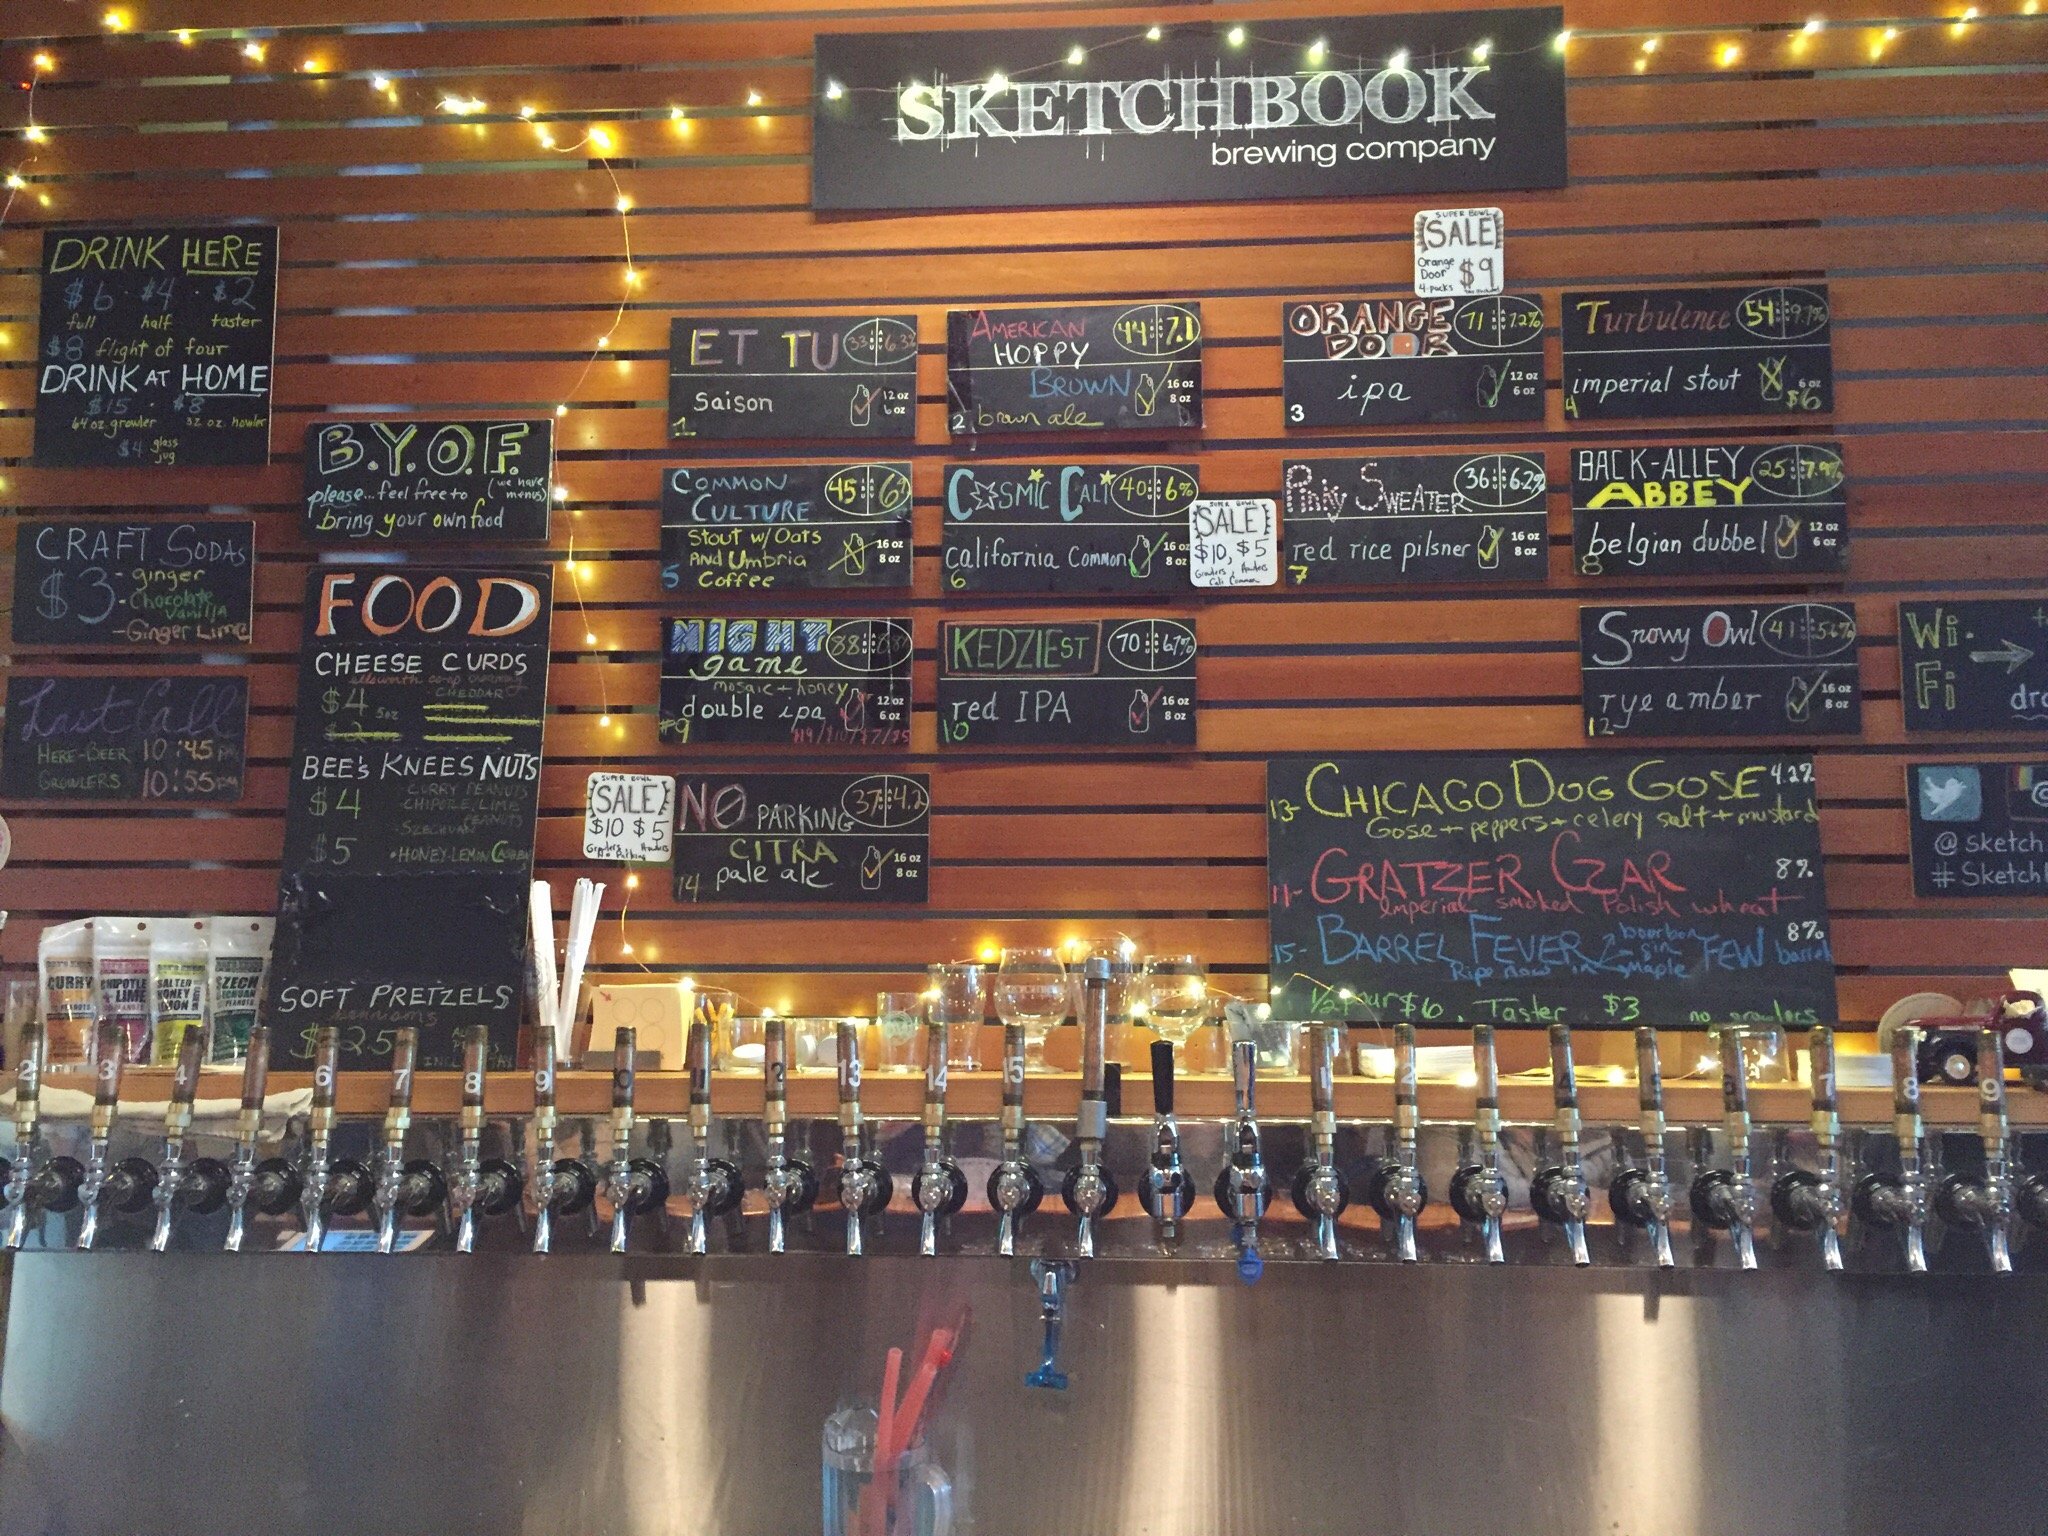 SKETCHBOOK
brewing company
DRINK HERE
$6 · $4 · $2
full half taster
$8 flight of four
DRINK AT HOME
$15 · $8
64 oz. growler 32 oz. howler
$4 glass
jug
B.Y.O.F.
please...feel free to (we have
menus)
bring your own food
CRAFT SODAS
$3 - ginger
- Chocolate
Vanilla
- Ginger Lime
Last Call
HERE-BEER 10:45 PM
GROWLERS 10:55 PM
FOOD
CHEESE CURDS
CHEDDAR
$4 5oz
BEE'S KNEES NUTS
$4 CURRY PEANUTS
CHIPOTLE LIME
PEANUTS
- SZECHUAN
$5 • HONEY-LEMON
SOFT PRETZELS
CURRY
CHIPOTLE
LIME
SALTER
HONEY
SZECH
ET TU 33 6.3%
saison 12 oz
6 oz
1
AMERICAN 44 7.1
HOPPY
BROWN 16 oz
8 oz
2 brown ale
SUPER BOWL
SALE
Orange
Door $9
4-packs
ORANGE 71 7.2%
DOOR
ipa 12 oz
6 oz
3
Turbulence 54 9.1%
imperial stout 6 oz
$6
4
COMMON 45 6%
CULTURE
Stout w/ Oats
AND Umbria 16 oz
8 oz
5 Coffee
COSMIC CALI 40 6%
california common 16 oz
8 oz
6
SUPER BOWL
SALE
$10, $5
Growlers, Howlers
Cali Common
Pinky SWEATER 36 6.2%
red rice pilsner 16 oz
8 oz
7
BACK-ALLEY
ABBEY 25 7.9%
belgian dubbel 12 oz
6 oz
8
NIGHT 88
game
mosaic + honey
double ipa 12 oz
6 oz
#9
KEDZIEST 70 6.7%
red IPA 16 oz
8 oz
10
Snowy Owl 41 5.6%
rye amber 16 oz
8 oz
12
Wi.
Fi
SUPER BOWL
SALE
$10 $5
Growlers Howlers
No Parking
NO PARKING 37 4.2
CITRA
pale ale 16 oz
8 oz
14
13- CHICAGO DOG GOSE 4.2%
Gose + peppers + celery salt + mustard
11- GRATZER CZAR 8%
Imperial smoked Polish wheat
15- BARREL FEVER bourbon 8%
gin FEW barrel
Ripe now in maple
1/2 Pour $6. Taster $3 no growlers
@ sketch
# Sketch
2 3 4 6 7 8 9 10 11 12 13 14 15 1 2 4 5 6 7 8 9